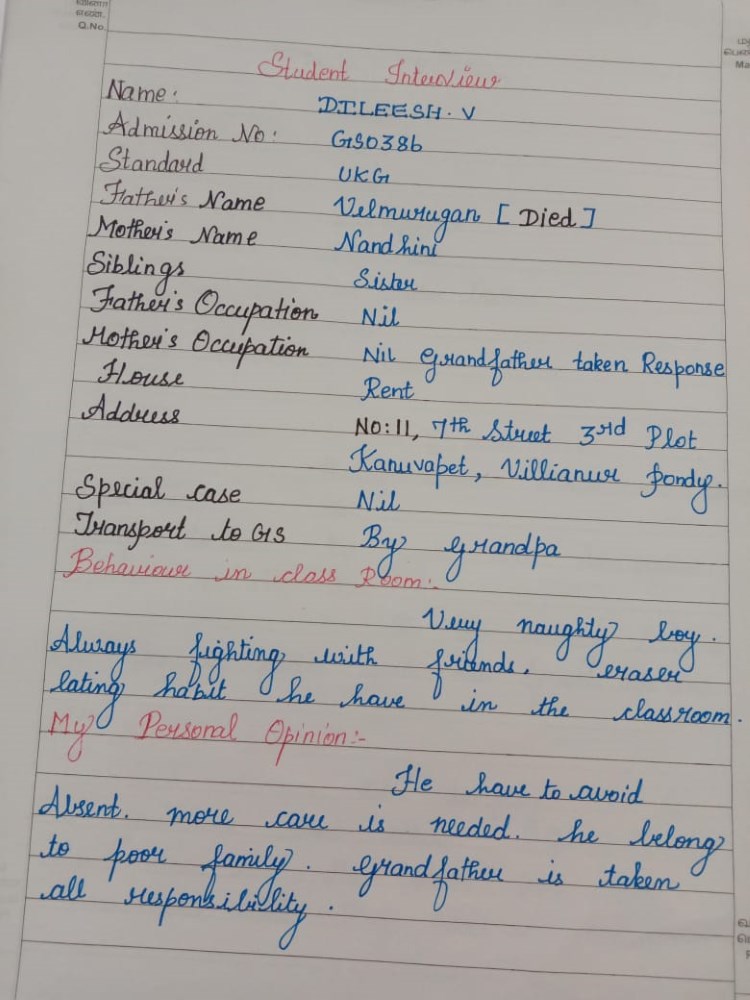 Q.No.
Student Interview
Name: DILEESH. V
Admission No: GS0386
Standard UKG
Father's Name Velmurugan [Died]
Mother's Name Nandhini
Siblings Sister
Father's Occupation Nil
Mother's Occupation Nil Grandfather taken Response
House Rent
Address No:11, 7th Street 3rd Plot
Kanuvapet, Villianur Pondy.
Special case Nil
Transport to GS By grandpa
Behaviour in class Room:-
Very naughty boy.
Always fighting with friends. eraser
eating habit he have in the classroom.
My Personal Opinion:-
He have to avoid
Absent. more care is needed. he belong
to poor family. Grandfather is taken
all responsibility.